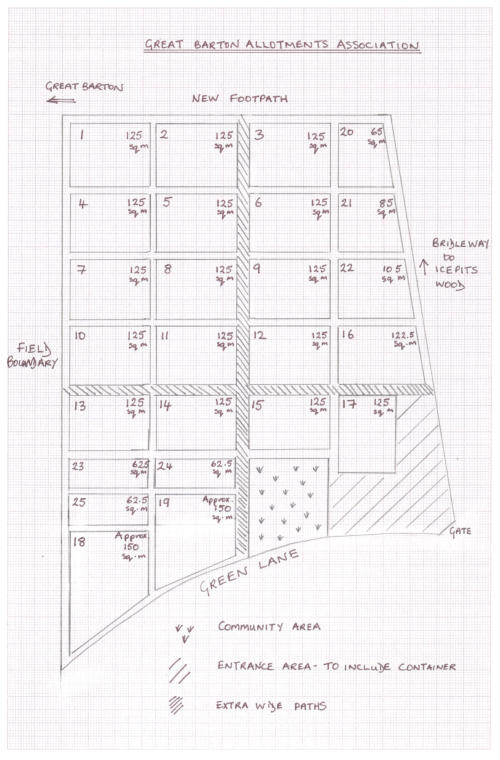 GREAT BARTON ALLOTMENTS ASSOCIATION
GREAT BARTON
NEW FOOTPATH
1 125 sq m
2 125 sq m
3 125 sq m
20 65 sq m
4 125 sq m
5 125 sq m
6 125 sq m
21 85 sq m
BRIDLEWAY
to
ICEPITS
WOOD
7 125 sq m
8 125 sq m
9 125 sq m
22 105 sq m
FIELD
BOUNDARY
10 125 sq m
11 125 sq m
12 125 sq m
16 122.5 sq.m
13 125 sq m
14 125 sq m
15 125 sq m
17 125 sq m
23 625 sq m
24 62.5 sq.m
25 62.5 sq.m
19 Approx. 150 sq.m
18 Approx 150 sq.m
GATE
GREEN LANE
COMMUNITY AREA
ENTRANCE AREA - TO INCLUDE CONTAINER
EXTRA WIDE PATHS